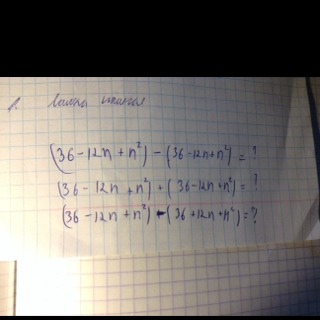 (36-12n+n²) - (36-12n+n²) = ?
(36-12n+n²) + (36-12n+n²) = ?
(36-12n+n²) - (36+12n+n²) = ?